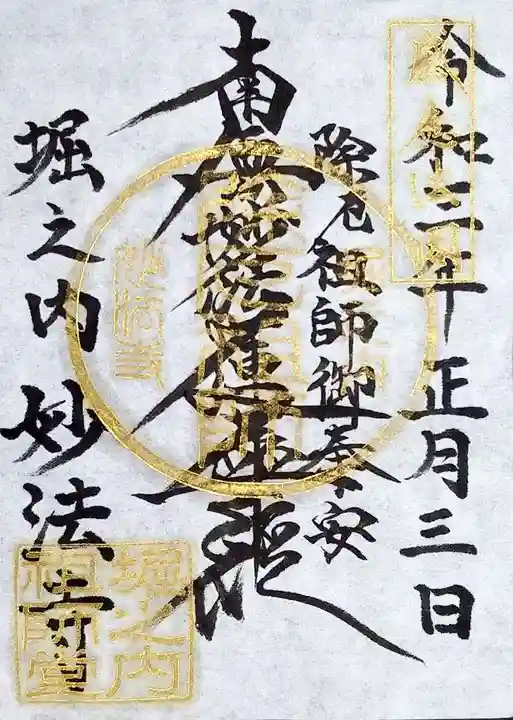 令和三年正月三日
除厄祖師御奉安
南無妙法蓮華経
堀之内妙法寺
妙法寺
堀之内
祖師堂